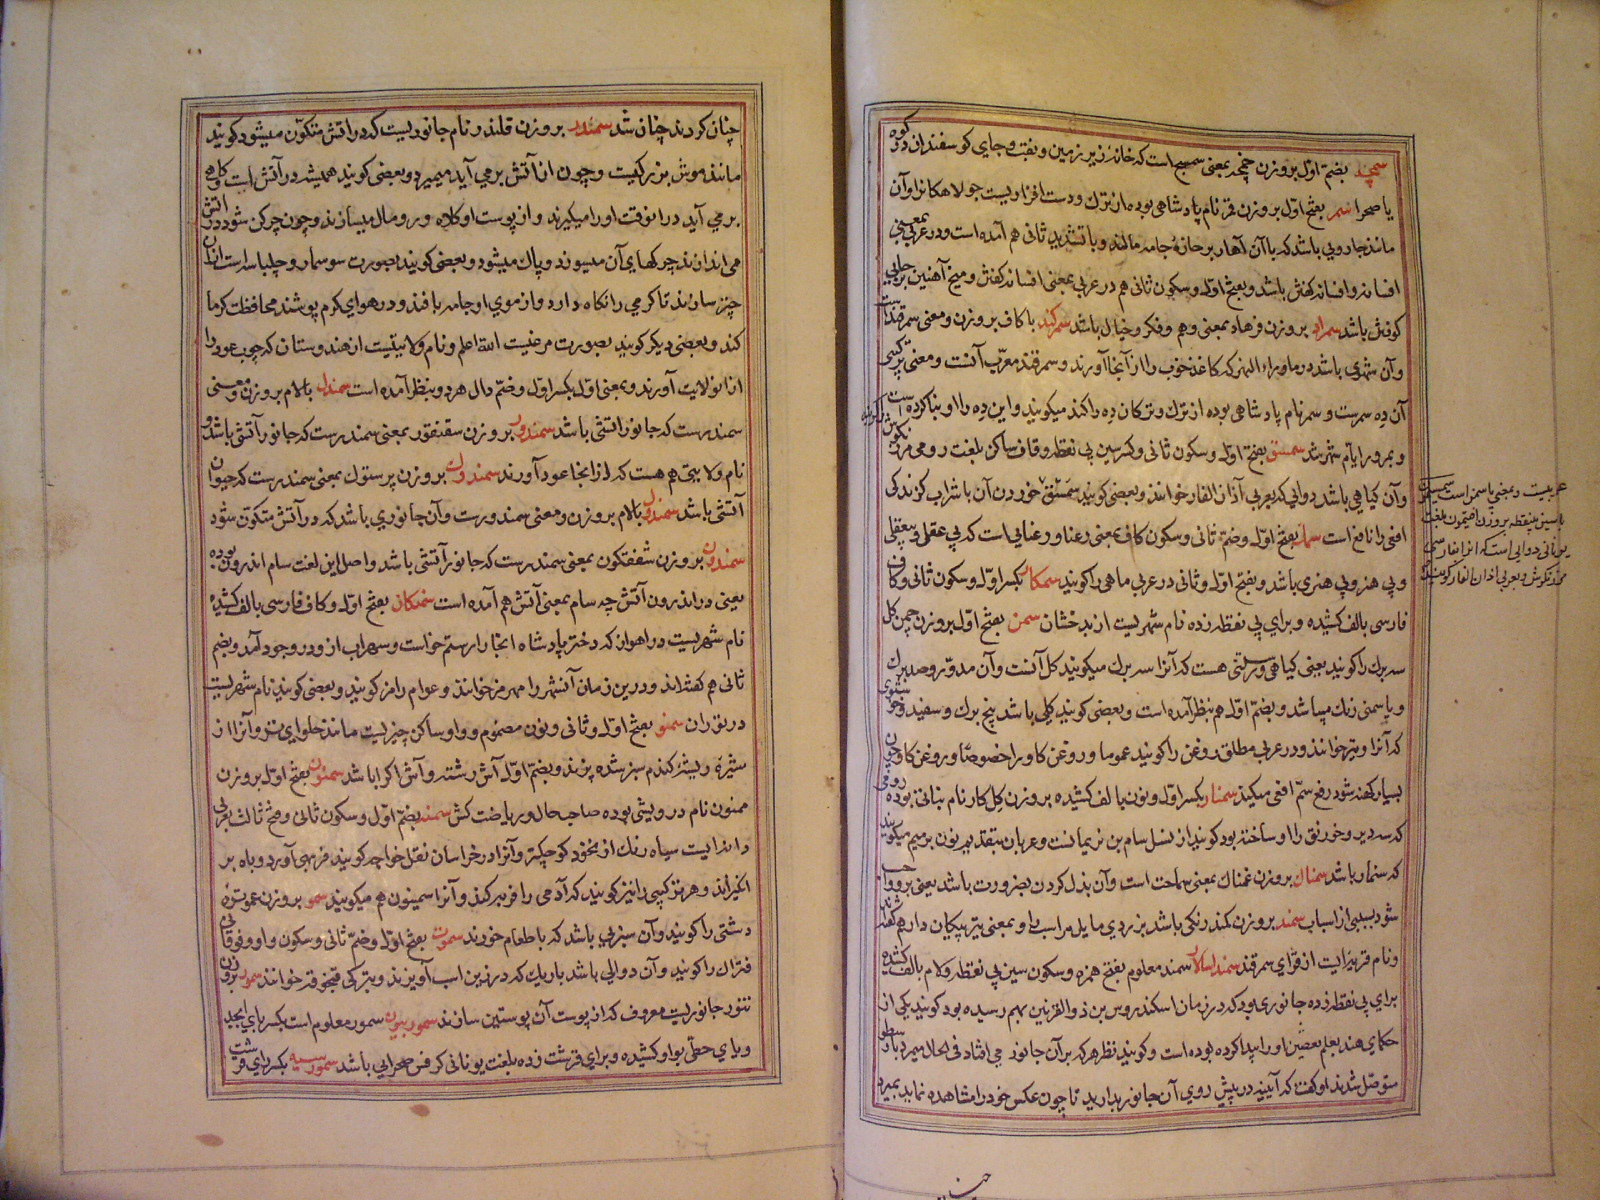 سمچد بضم اول بروزن چمچد بمعنی سمج است که خانه زیر زمین و نقب و جای کوسفندان در کوه
یا صحرا سمر بفتح اول بروزن قمر نام پادشاهی بوده از ترک و دست افزاریست جولاهکانرا و آن
مانند جاروبی باشد که با آن آهار بر جامه مالند و با تشدید ثانی هم آمده است و در عربی بمعنی
افسانه و افسانه کفتن باشد و بفتح اول و سکون ثانی هم در عربی بمعنی افسانه کفتن و میخ آهنین بر جایی
کوفتن باشد سمراد بروزن فرهاد بمعنی وهم و فکر و خیال باشد سمرکند با کاف بروزن و معنی سمرقند است
و آن شهری باشد در ماوراء النهر که کاغذ خوب را از آنجا آورند و سمرقند معرب آنست و معنی ترکیبی
آن ده سمرست و سمر نام پادشاهی بوده از ترک و ترکان ده را کند میکویند و این ده را او بنا کرده است
و بمرور ایام شهر شد سمسق بفتح اول و سکون ثانی و کسر سین بی نقطه و قاف ساکن بلغت رومی مرزنکوش
و آن کیاهی باشد دوایی که بعربی آذان الفار خوانند و بعضی کویند سمسق خوردن آن با شراب کزندکی
افعی را نافع است بفتح اول و ضم ثانی و سکون کاف بمعنی رعنا و رعنایی است که بی عقلی و بیعقلی
و بی هنر و بی هنری باشد و بفتح اول و ثانی در عربی ماهی را کویند سمکان بکسر اول و سکون ثانی و کاف
فارسی بالف کشیده و برای بی نقطه زده نام شهریست از بدخشان سمن بفتح اول بروزن چمن کل
سه برک را کویند یعنی کیاهی و رستنی هست که آنرا سه برک میکویند کل آنست و آن مدور و صد برک
و یاسمنی رنک میباشد و بضم اول هم بنظر آمده است و بعضی کویند کلی باشد پنج برک و سفید و خوشبوی
که آنرا خوانند و در عربی مطلق روغن را کویند عموما و روغن کاو را خصوصا و روغن کاو چون
بسیار کهنه شود رفع سم افعی میکند سمنار بکسر اول و نون بالف کشیده بروزن کل کار نام بنایی بوده رومی
که سدیر و خورنق را او ساخته بود کویند از نسل سام بن نریمانست و عربان بتقدیم نون بر میم میکویند
که سنمار باشد سمناک بروزن غمناک بمعنی سماحت است و آن بذل کردن بضرورت باشد یعنی بر او واجب
شود بسببی از اسباب سمند بروزن کمند رنکی باشد بزردی مایل مر اسب را و بمعنی تیر پیکان دار هم کفته‌اند
و نام قریه ایست از قرای سمرقند سمند اسالار سمند معلوم بفتح همزه و سکون سین بی نقطه و لام بالف کشیده
برای بی نقطه زده جانوری بود که در زمان اسکندروس بن ذوالقرنین بهم رسیده بود کویند یکی از
حکمای هند بعلم او را پیدا کرده بوده است و کویند نظر هر که بر آن جانور می افتاد فی الحال میمرد بارسطو
متوصل شدند او کفت که آیینه در پیش روی آن جانور بدارید تا چون عکس خود را مشاهده نماید بمیرد
عربیست و بمعنی یاسمن است
با سین بینقطه بروزن افیتمون بلغت
یونانی دوایی است که آنرا بفارسی
مرزنکوش و بعربی اذان الفار کویند
چنان کردند چنان شد سمندر بروزن قلندر نام جانوریست که در آتش متکون میشود کویند
مانند موش بزرکیست و چون از آتش برمی آید میمیرد و بعضی کویند همیشه در آتش است و کاهی
برمی آید در آنوقت او را میکیرند و از پوست او کلاه و رومال میسازند و چون چرکن شود در آتش
می اندازند چرکهای آن میسوزد و پاک میشود و بعضی کویند بصورت سوسمار و چلپاسه است از آن
چتر سازند تا کرمی را نکاه دارد و از موی او جامه بافند و در هوای کرم پوشند محافظت کرما
کند و بعضی دیکر کویند بصورت مرغیست الله اعلم و نام ولایتیست از هندوستان که چوب عود را
از آنولایت آورند و بمعنی اول بکسر اول و ضم دال هر دو بنظر آمده است سمندل بالام بروزن و معنی
سمندرست که جانور آتشی باشد سمندور بروزن سقنقور بمعنی سمندرست که جانور آتشی باشد و
نام ولایتی هم هست که از آنجا عود آورند سمندوک بروزن پرستوک بمعنی سمندرست که حیوان
آتشی باشد سمندول بالام بروزن و معنی سمندورست و آن جانوری باشد که در آتش متکون شود
سمندون بروزن شفقکون بمعنی سمندرست که جانور آتشی باشد و اصل این لغت سام اندرون بوده
یعنی در اندرون آتش چه سام بمعنی آتش هم آمده است سمنکان بفتح اول و کاف فارسی بالف کشیده
نام شهریست در اهواز که دختر پادشاه آنجا را رستم خواست و سهراب از او در وجود آمد و بضم
ثانی هم کفته‌اند و درین زمان آنشهر را مهرمز خوانند و عوام رامز کویند و بعضی کویند نام شهریست
در توران سمنو بفتح اول و ثانی و نون مضموم و واو ساکن چیزیست مانند حلوای تر و آنرا از
شیره ریشه کندم سبز شده پزند و بضم اول آش رشته و آش اکرا باشد سمنون بفتح اول بروزن
ممنون نام درویشی بوده صاحب حال و ریاضت کش سمنه بضم اول و سکون ثانی و فتح ثالث بعربی
دانه ایست سیاه رنک از نخود کوچکتر و آنرا در خراسان نقل خواجه کویند فربهی آورد و باه بر
انکیزاند و هر ترکیبی را نیز کویند که آدمی را فربه کند و آنرا سمینون هم میکویند سمو بروزن عمو تره
دشتی را کویند و آن سبزیی باشد که با طعام خورند سموت بفتح اول و ضم ثانی و سکون واو و فوقانی
فتراک را کویند و آن دوالی باشد باریک که در زین اسب آویزند و بترکی قنجوقه خوانند سمور بروزن
تنور جانوریست معروف که از پوست آن پوستین سازند سمور بیون سمور معلوم است بکسر بای ابجد
و بای حطی بواو کشیده و برای قرشت زده بلغت یونانی کرفس صحرایی باشد سمور سیه بکسر رای قرشت